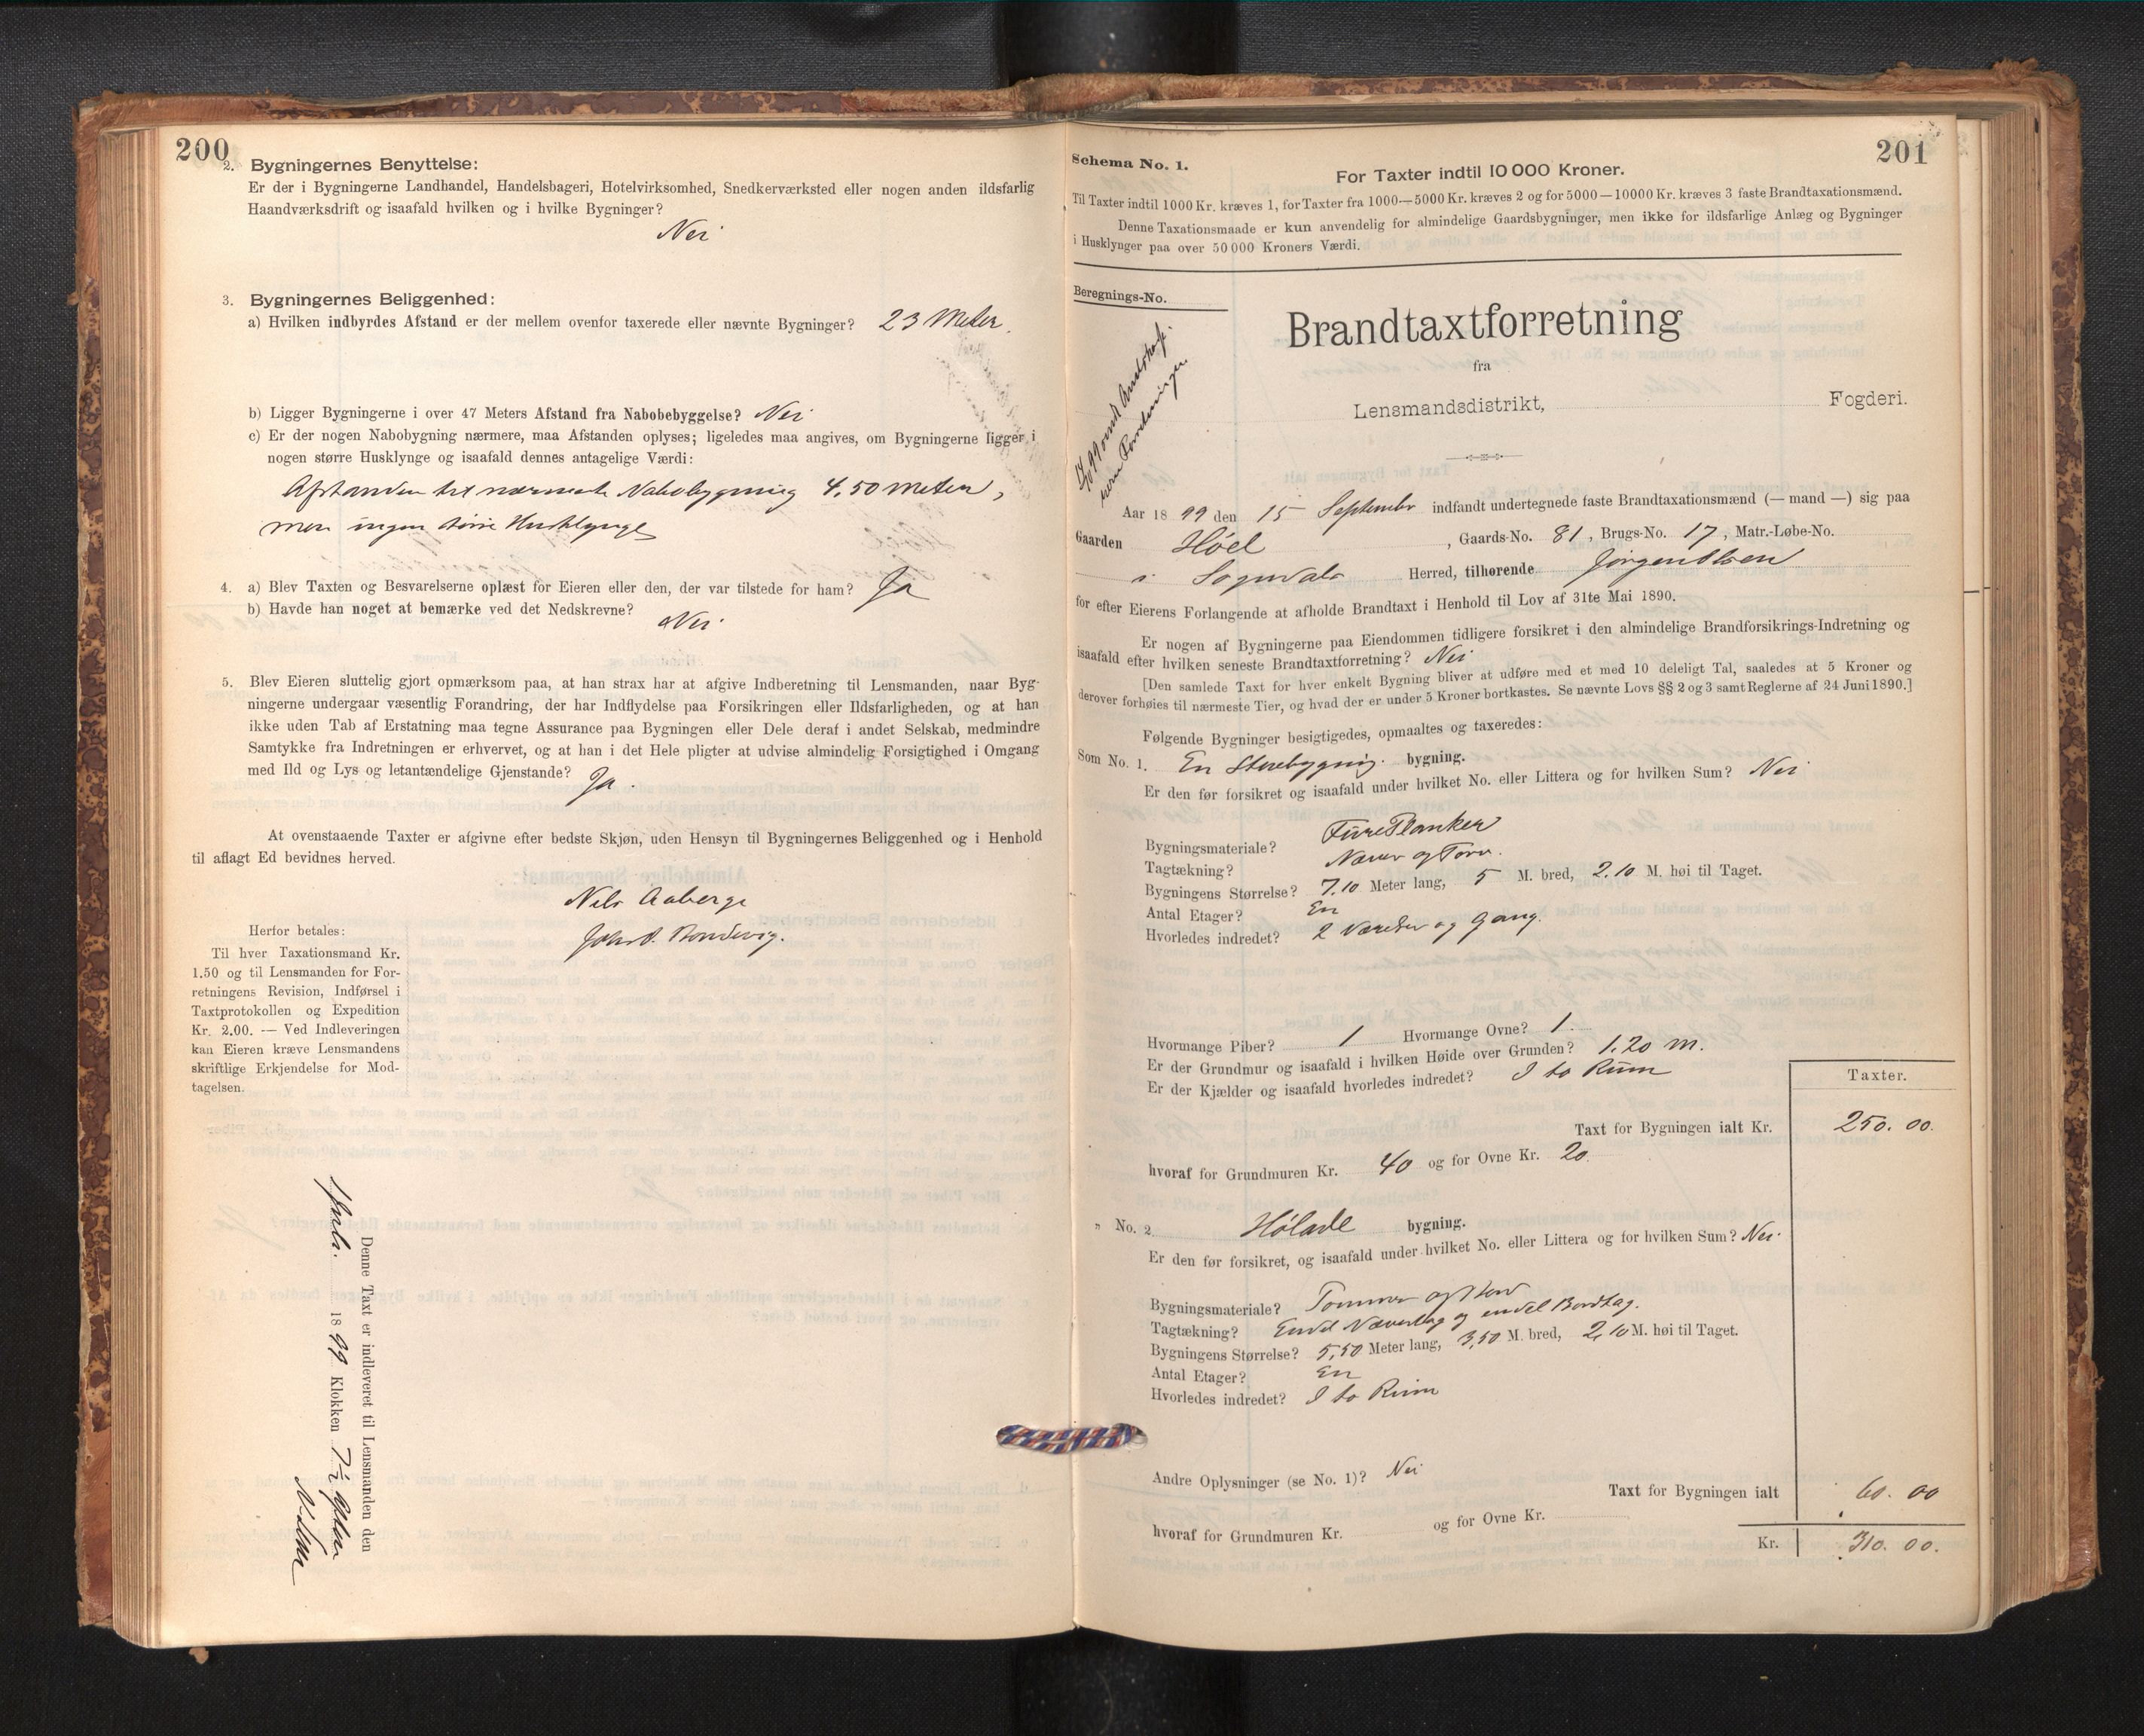 200
2. Bygningernes Benyttelse:
Er der i Bygningerne Landhandel, Handelsbageri, Hotelvirksomhed, Snedkerværksted eller nogen anden ildsfarlig
Haandværksdrift og isaafald hvilken og i hvilke Bygninger?
Nei
3. Bygningernes Beliggenhed:
a) Hvilken indbyrdes Afstand er der mellem ovenfor taxerede eller nævnte Bygninger? 23 Meter.
b) Ligger Bygningerne i over 47 Meters Afstand fra Nabobebyggelse? Nei
c) Er der nogen Nabobygning nærmere, maa Afstanden oplyses; ligeledes maa angives, om Bygningerne ligger i
nogen større Husklynge og isaafald dennes antagelige Værdi:
Afstanden til nærmeste Nabobygning 4,50 meter,
men ingen større Husklynge
4. a) Blev Taxten og Besvarelserne oplæst for Eieren eller den, der var tilstede for ham? Ja
b) Havde han noget at bemærke ved det Nedskrevne?
Nei.
5. Blev Eieren sluttelig gjort opmærksom paa, at han strax har at afgive Indberetning til Lensmanden, naar Byg-
ningerne undergaar væsentlig Forandring, der har Indflydelse paa Forsikringen eller Ildsfarligheden, og at han
ikke uden Tab af Erstatning maa tegne Assurance paa Bygningen eller Dele deraf i andet Selskab, medmindre
Samtykke fra Indretningen er erhvervet, og at han i det Hele pligter at udvise almindelig Forsigtighed i Omgang
med Ild og Lys og letantændelige Gjenstande? Ja.
At ovenstaaende Taxter er afgivne efter bedste Skjøn, uden Hensyn til Bygningernes Beliggenhed og i Henhold
til aflagt Ed bevidnes herved.
Nils Aaberge
Joh. Bondevig.
Herfor betales:
Til hver Taxationsmand Kr.
1.50 og til Lensmanden for For-
retningens Revision, Indførsel i
Taxtprotokollen og Expedition
Kr. 2.00. — Ved Indleveringen
kan Eieren kræve Lensmandens
skriftlige Erkjendelse for Mod-
tagelsen.
Denne Taxt er indleveret til Lensmanden den
1899 Klokken 7½
201
Schema No. 1.
For Taxter indtil 10 000 Kroner.
Til Taxter indtil 1000 Kr. kræves 1, for Taxter fra 1000—5000 Kr. kræves 2 og for 5000—10000 Kr. kræves 3 faste Brandtaxationsmænd.
Denne Taxationsmaade er kun anvendelig for almindelige Gaardsbygninger, men ikke for ildsfarlige Anlæg og Bygninger
i Husklynger paa over 50 000 Kroners Værdi.
Beregnings-No.
Brandtaxtforretning
fra
Lensmandsdistrikt, Fogderi.
Aar 1899 den 15 September indfandt undertegnede faste Brandtaxationsmænd (— mand —) sig paa
Gaarden Høel, Gaards-No. 81, Brugs-No. 17, Matr.-Løbe-No.
i Sogndals Herred, tilhørende Jørgen Olsen
for efter Eierens Forlangende at afholde Brandtaxt i Henhold til Lov af 31te Mai 1890.
Er nogen af Bygningerne paa Eiendommen tidligere forsikret i den almindelige Brandforsikrings-Indretning og
isaafald efter hvilken seneste Brandtaxtforretning? Nei
[Den samlede Taxt for hver enkelt Bygning bliver at udføre med et med 10 deleligt Tal, saaledes at 5 Kroner og
derover forhøies til nærmeste Tier, og hvad der er under 5 Kroner bortkastes. Se nævnte Lovs §§ 2 og 3 samt Reglerne af 24 Juni 1890.]
Følgende Bygninger besigtigedes, opmaaltes og taxeredes:
Som No. 1. En Stuebygnig. bygning.
Er den før forsikret og isaafald under hvilket No. eller Littera og for hvilken Sum? Nei
Bygningsmateriale? Fure Planker
Tagtækning? Næver og Torv.
Bygningens Størrelse? 7.10 Meter lang, 5 M. bred, 2.10 M. høi til Taget.
Antal Etager? En
Hvorledes indredet? 2 Værelser og Gang.
Hvormange Piber? 1 Hvormange Ovne? 1.
Er der Grundmur og isaafald i hvilken Høide over Grunden? 1.20 m.
Er der Kjælder og isaafald hvorledes indredet? I to Rum
Taxter.
Taxt for Bygningen ialt Kr. 250.00.
hvoraf for Grundmuren Kr. 40 og for Ovne Kr. 20.
" No. 2. Hølade bygning.
Er den før forsikret, og isaafald under hvilket No. eller Littera og for hvilken Sum? Nei.
Bygningsmateriale? Tømmer og
Tagtækning? Endel Nævertag og endel Bordtag.
Bygningens Størrelse? 5,50 Meter lang, 3,50 M. bred, 2,10 M. høi til Taget.
Antal Etager? En
Hvorledes indredet? I to Rum
Andre Oplysninger (se No. 1)? Nei
Taxt for Bygningen ialt 60.00
hvoraf for Grundmuren Kr. og for Ovne Kr.
Kr. 310.00.